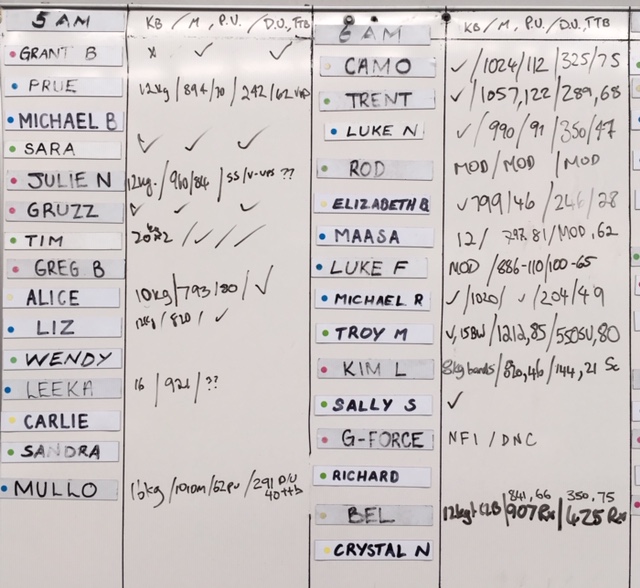 5 AM KB / M, P.U. / D.U, TTB
GRANT B x ✓ ✓
PRUE 12kg / 894/70 / 242/62
MICHAEL B
SARA ✓ ✓ ✓
JULIE N 12kg. / 960/84 / SS/V-ups ??
GRUZZ ✓ ✓ ✓
TIM 20kg x2 / ✓ / ✓ /
GREG B
ALICE 10kg / 793/80 / ✓
LIZ 12kg / 820 / ✓
WENDY
LEEKA 16 / 921 / ??
CARLIE
SANDRA
MULLO 16kg / 1010m / 62pu / 291 D/U 40ttb
6 AM KB / M, P.U. / D.U, TTB
CAMO ✓ / 1024/112 / 325/75
TRENT ✓ / 1057,122 / 289,68
LUKE N ✓ / 990/91 / 350/47
ROD MOD / MOD / MOD
ELIZABETH B ✓ 799/46 / 246/28
MAASA 12 / 81 / MOD, 62
LUKE F MOD / 886-110/100-65
MICHAEL R ✓ / 1020 / ✓ / 204/49
TROY M ✓, 15BW / 1212,85 / 550SU, 80
KIM L 8kg bands / 820,46 / 144, 21 Sc
SALLY S ✓
G-FORCE NFI / DNC
RICHARD
841, 66 350, 75
BEL 12kg / 907 Rx / 425 Rx
CRYSTAL N